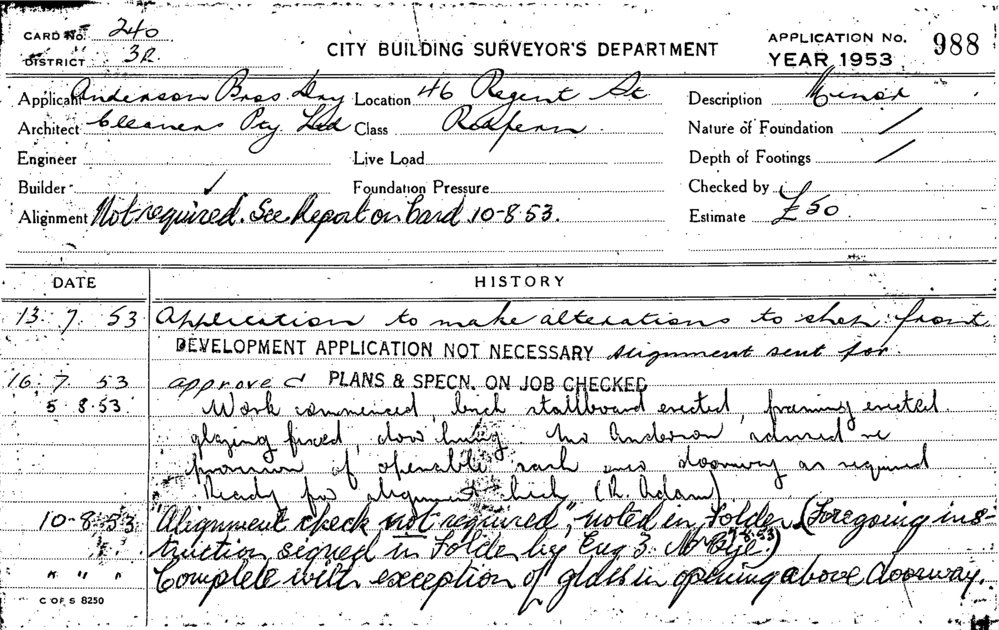 CARD No. 240
DISTRICT 3R
CITY BUILDING SURVEYOR'S DEPARTMENT
APPLICATION No. 988
YEAR 1953
Applicant Anderson Bros. Dry Location 46 Regent St. Description Minor
Architect Cleaners Pty. Ltd Class Redfern Nature of Foundation /
Engineer Live Load Depth of Footings /
Builder ✓ Foundation Pressure Checked by
Alignment Not required. See Report on Card 10-8-53. Estimate £50
DATE HISTORY
13. 7. 53 Application to make alterations to shop front
DEVELOPMENT APPLICATION NOT NECESSARY Alignment sent for.
16. 7. 53 approved PLANS & SPECN. ON JOB CHECKED
5.8.53. Work commenced, brick stallboard erected, framing erected.
glazing fixed, door hung. Mr Anderson advised re
provision of openable sash over doorway as required
Ready for alignment check (R. Adam)
10-8-53. "Alignment check not required", noted in Folder (Foregoing ins-
truction signed in Folder by Eng 3. 7.8.53)
" " " Complete with exception of glass in opening above doorway.
C OF S 8250